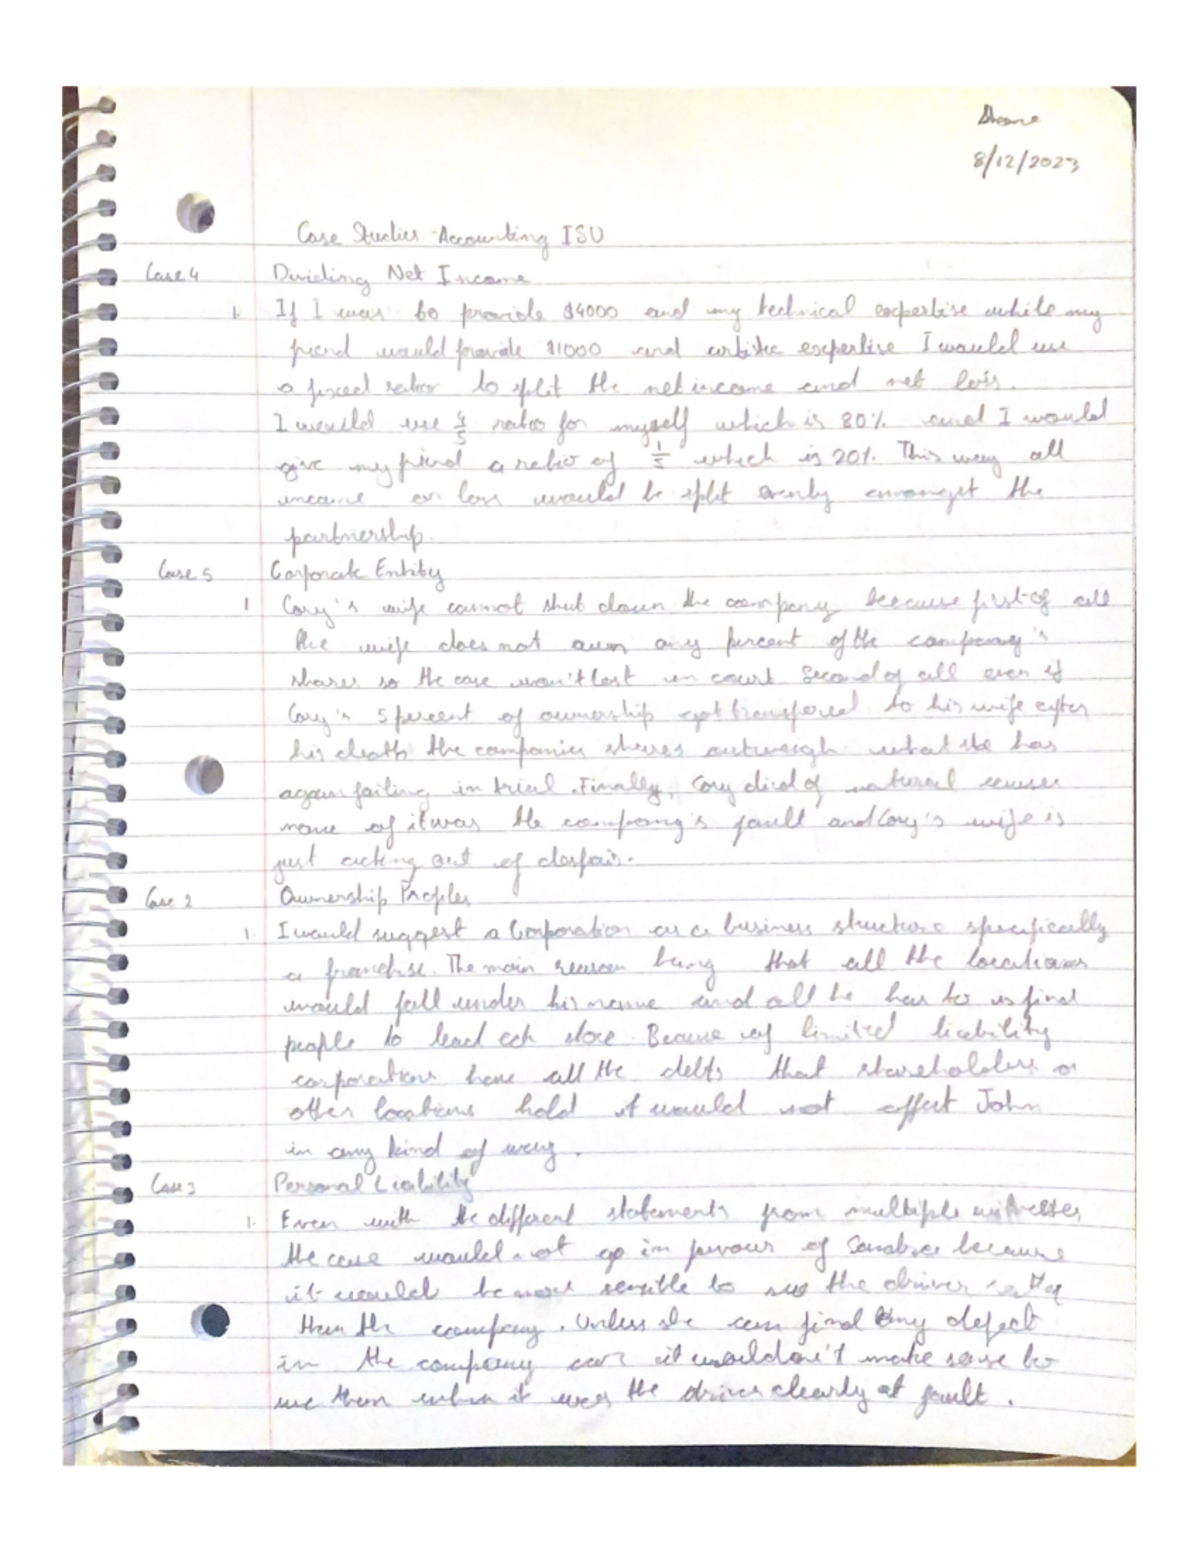 Shane
8/12/2023
Case Studies - Accounting ISU
Case 4 Dividing Net Income
1. If I was to provide $4000 and my technical expertise while my
friend would provide $1000 and artistic expertise I would use
a fixed ratio to split the net income and net loss.
I would use 4/5 ratio for myself which is 80% and I would
give my friend a ratio of 1/5 which is 20%. This way all
income or loss would be split evenly amongst the
partnership.
Case 5 Corporate Entity
1 Cory's wife cannot shut down the company because first of all
the wife does not own any percent of the company's
shares so the case won't last in court. Second of all even if
Cory's 5 percent of ownership got transfered to his wife after
his death the companies shares outweigh what she has
again failing in trial. Finally, Cory died of natural causes
none of it was the company's fault and Cory's wife is
just acting out of despair.
Case 2 Ownership Profiles
1. I would suggest a Corporation as a business structure specifically
a franchise. The main reason being that all the locations
would fall under his name and all he has to is find
people to lead each store. Because of limited liability
corporations have all the debts that shareholders or
other locations hold it would not affect John
in any kind of way.
Case 3 Personal Liability
1. Even with the different statements from multiple witnesses
the case would not go in favour of Sandra because
it would be more sensible to sue the driver
than the company. Unless she can find any defect
in the company car it wouldn't make sense to
sue them when it was the driver clearly at fault.